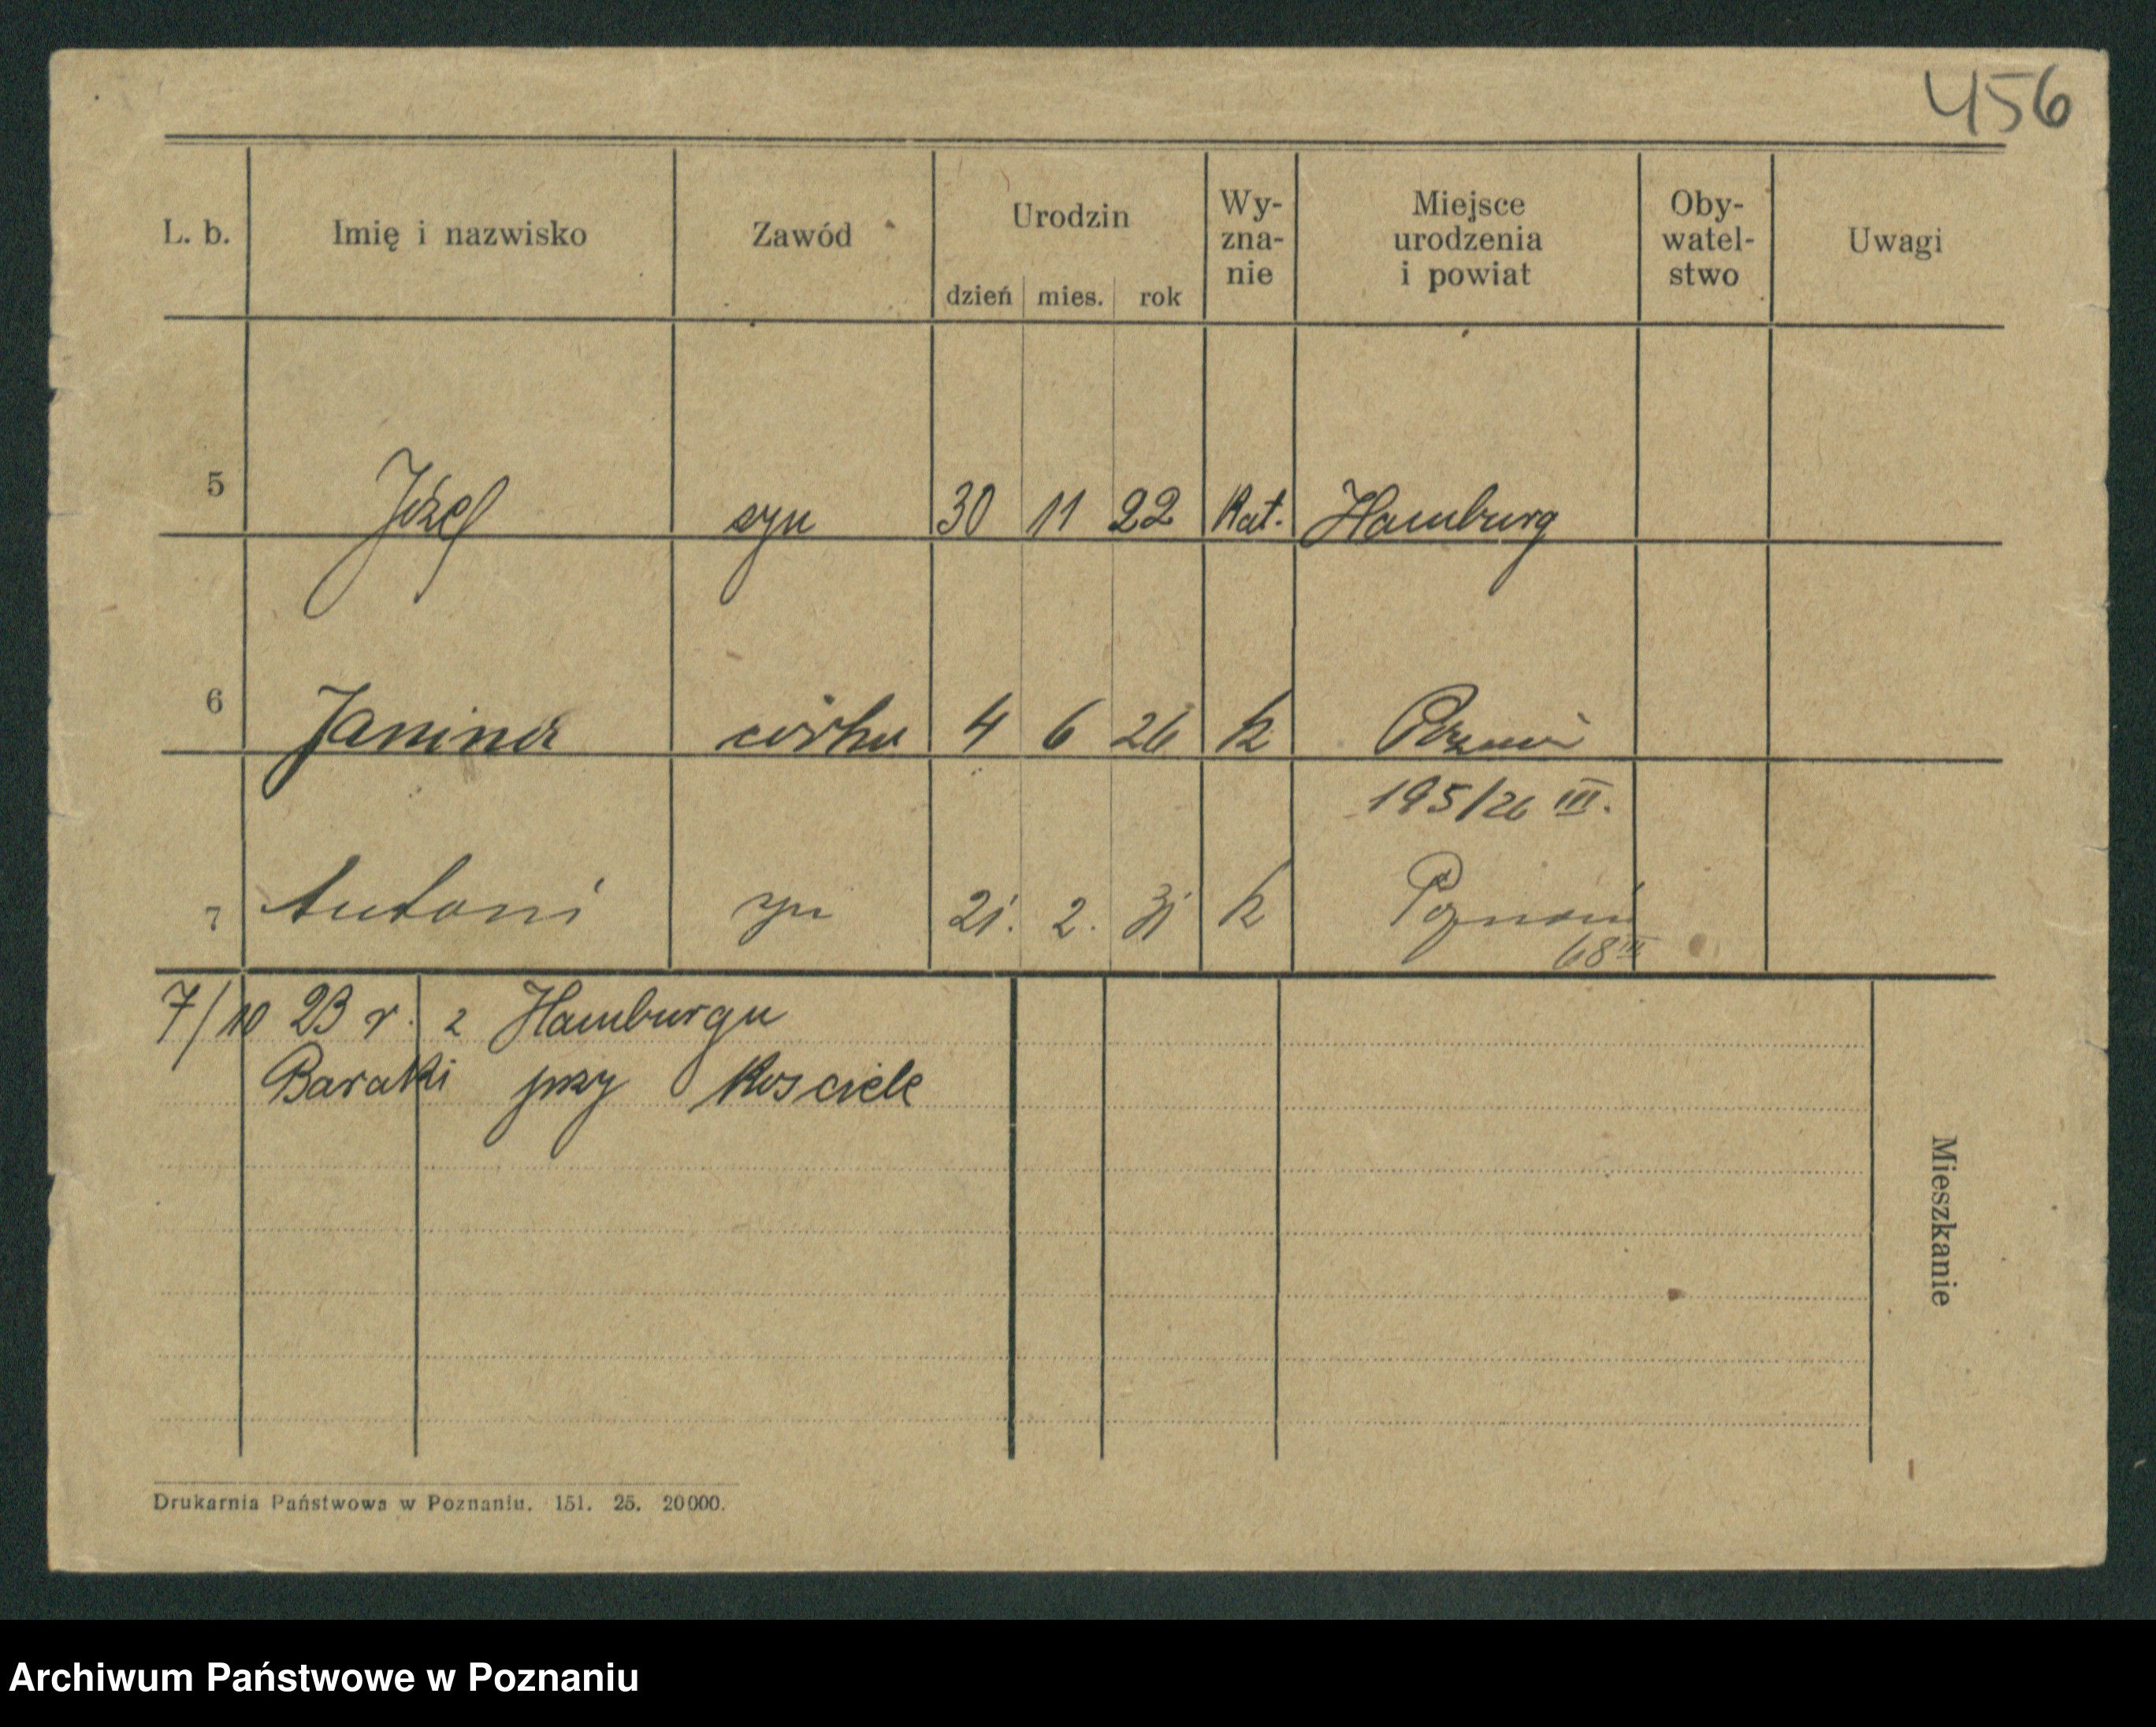 456
L. b. Imię i nazwisko Zawód Urodzin dzień mies. rok Wy-zna-nie Miejsce urodzenia i powiat Oby-watel-stwo Uwagi
5 Józef syn 30 11 22 Kat. Hamburg
6 Janina córka 4 6 26 k Poznań
195/26 III.
7 Antoni syn 21. 2. 31 k Poznań
68 III
7/10 23 r. z Hamburgu
Baraki przy Kosciele
Mieszkanie
Drukarnia Państwowa w Poznaniu. 151. 25. 20000.
Archiwum Państwowe w Poznaniu